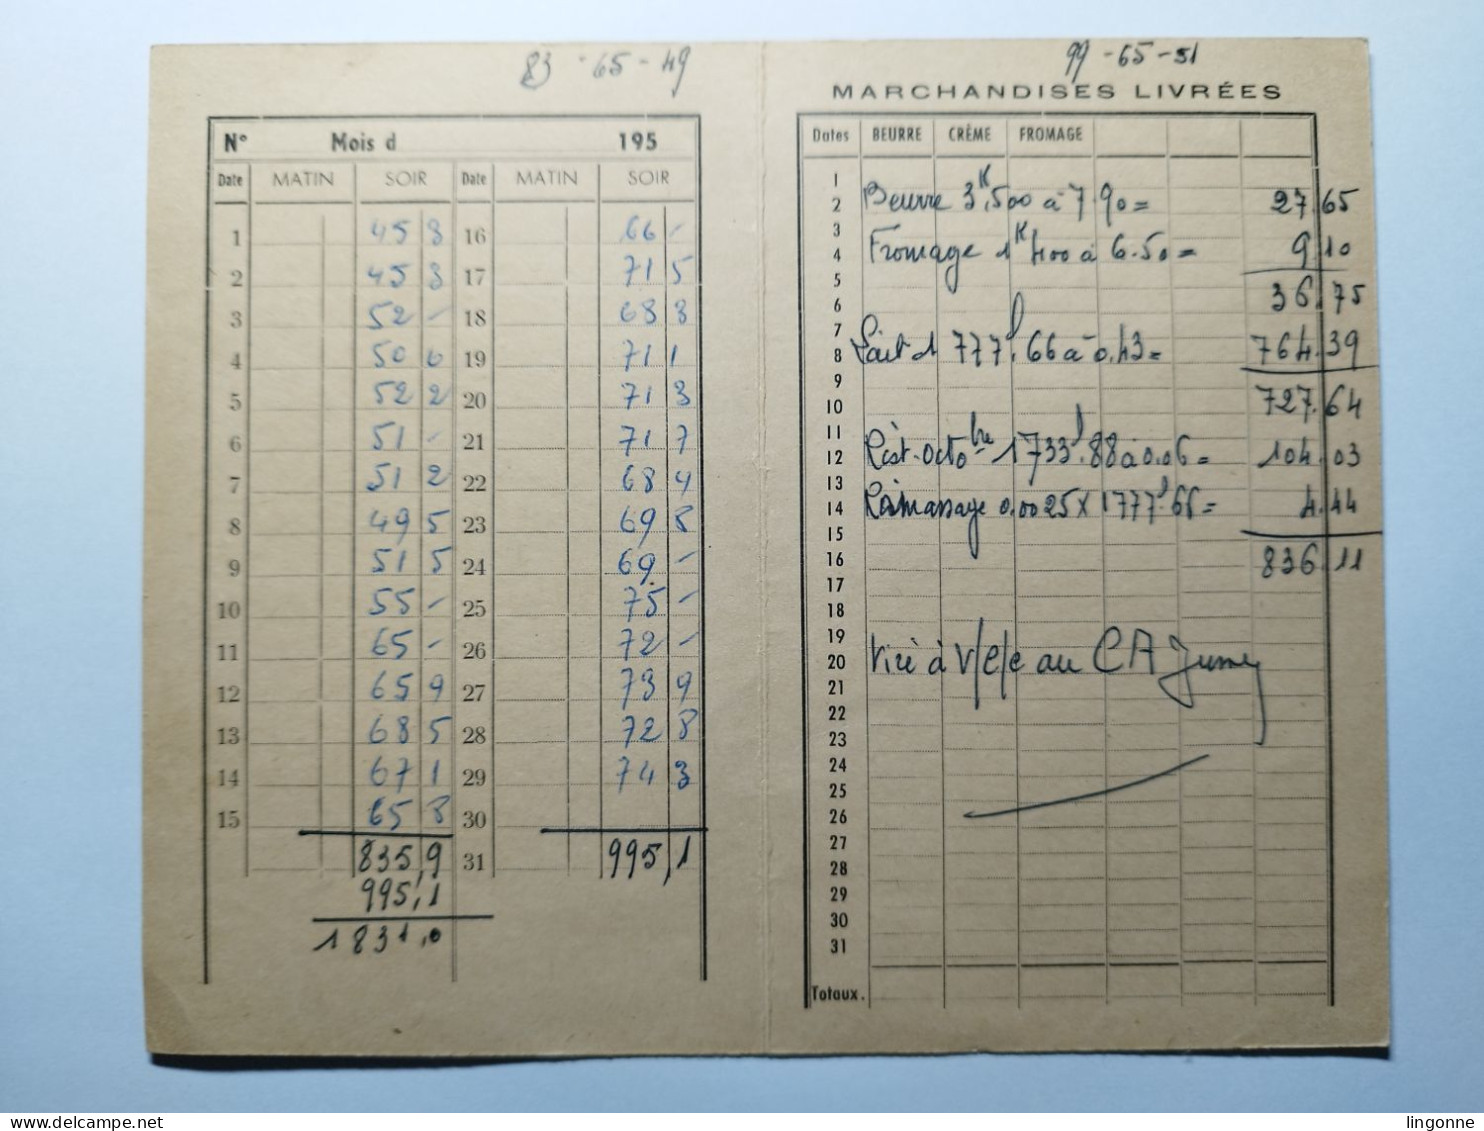 83 - 65 - 49
N° Mois d 195
Date MATIN SOIR Date MATIN SOIR
1 45 8 16 66 -
2 45 8 17 71 5
3 52 - 18 68 8
4 50 6 19 71 1
5 52 2 20 71 3
6 51 - 21 71 7
7 51 2 22 68 4
8 49 5 23 69 8
9 51 5 24 69 -
10 55 - 25 75 -
11 65 - 26 72 -
12 65 9 27 73 9
13 68 5 28 72 8
14 67 1 29 74 3
15 65 8 30
835,9 31 995,1
995,1
1831,0
99 - 65 - 51
MARCHANDISES LIVRÉES
Dates BEURRE CRÈME FROMAGE
1
2 Beurre 3K,500 à 7.90 = 27.65
3
4 Fromage 1K400 à 6.50 = 9.10
5
6 36.75
7
8 Lait 1777l.66 à 0.43 = 764.39
9
10 727.64
11
12 Rist. Octobre 1733l.88 à 0.06 = 104.03
13
14 Ramassage 0.0025 x 1777l.66 = 4.44
15
16 836.11
17
18
19
20 Viré à v/c/c au CA Jussey
21
22
23
24
25
26
27
28
29
30
31
Totaux.
lingonne